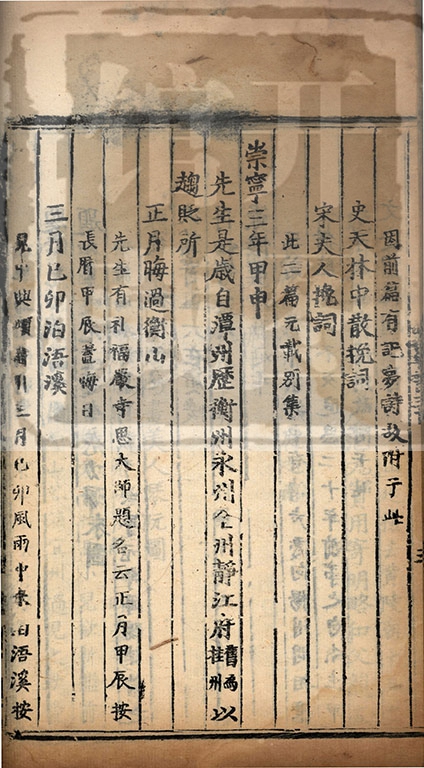 因前篇有記夢詩故附于此
史天休中散挽詞
宋夫人挽詞
此二篇元載别集
崇寧三年甲申
先生是歲自潭州歷衡州永州全州靜江府舊為桂州以
趨貶所
正月晦過衡山
先生有礼福嚴寺思大師題名云正月甲辰按
長曆甲辰蓋晦日
三月己卯泊浯溪
三月己卯風雨中來泊浯溪按